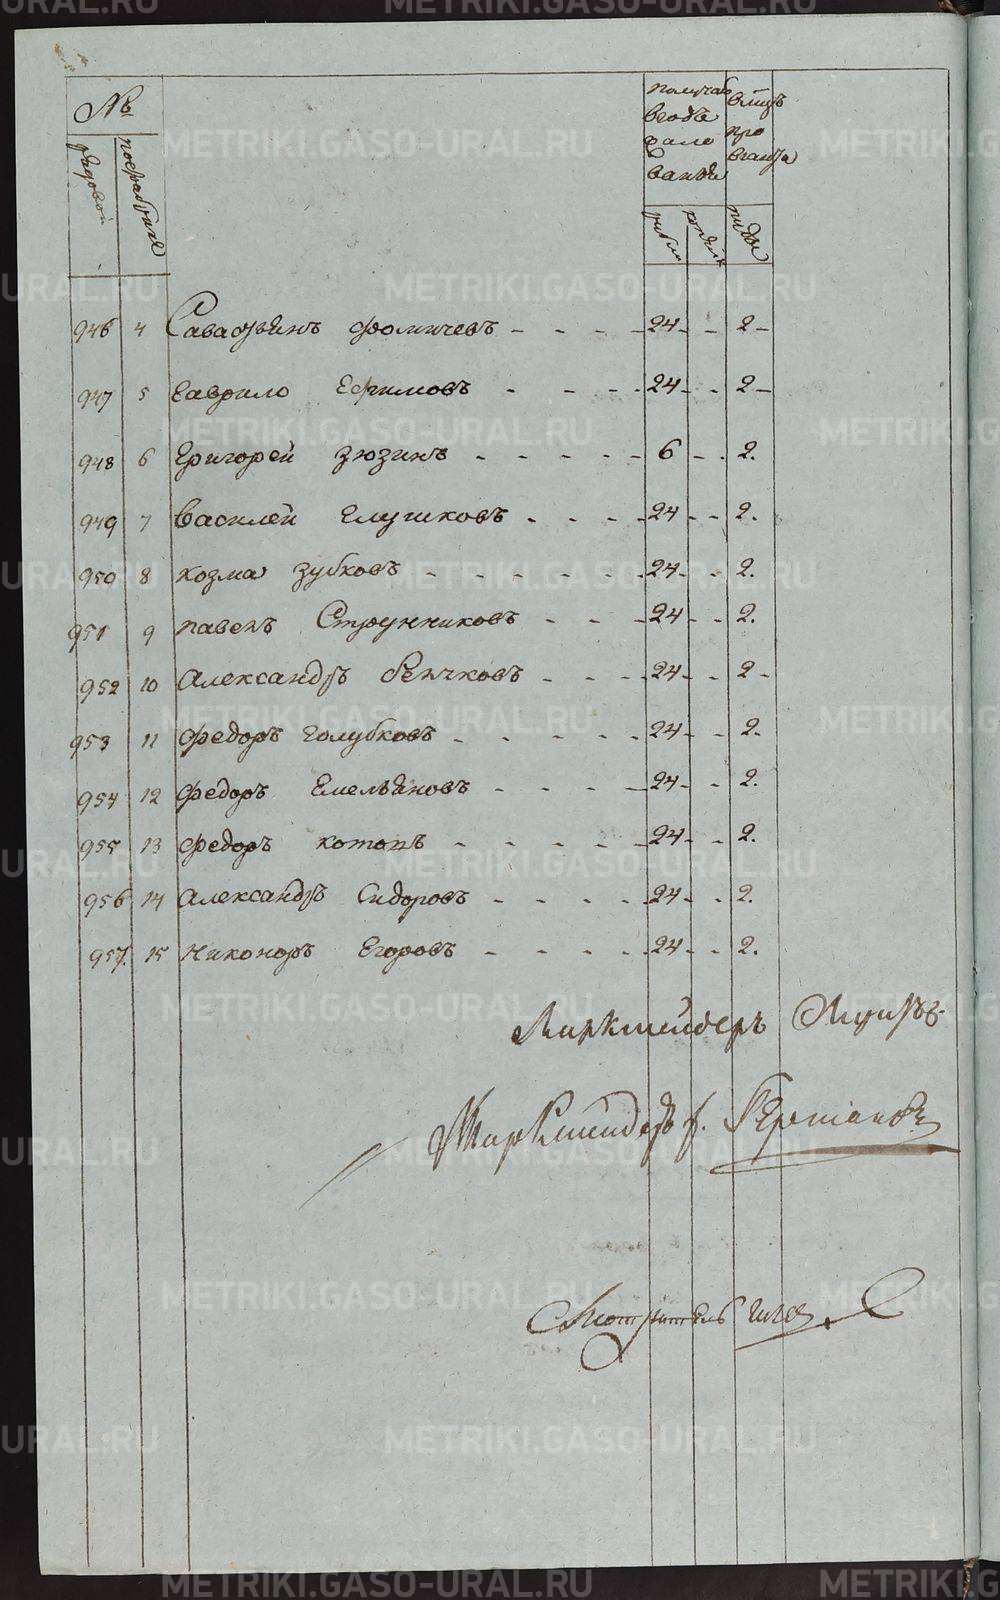 №
рядовой
получаю
вгодъ
жало
ванья
вмцъ
про
вианта
рубли
пуды
946 4 Савастьянъ Фомичевъ - - - - 24 - - 2 -
947 5 Гаврило Ефимовъ - - - - 24 - - 2 -
948 6 Григорей Зюзинъ - - - - - 6 - . 2.
949 7 Василей Глушковъ - - - - 24 - - 2.
950 8 Козма Зубковъ - - - - - - 24 - - 2.
951 9 Павелъ Струнниковъ - - - - 24 - - 2.
952 10 Александръ - - - - 24 - - 2 -
953 11 Федоръ Голубковъ - - - - - 24 - - 2.
954 12 Федоръ Емельяновъ - - - - 24 - - 2.
955 13 Федоръ Котовъ - - - - - 24 - - 2.
956 14 Александръ Сидоровъ - - - - 24 - - 2.
957. 15 Никоноръ Егоровъ - - - - 24 - - 2.
Маркшейдеръ
Маркшейдеръ
Смотритель
METRIKI.GASO-URAL.RU